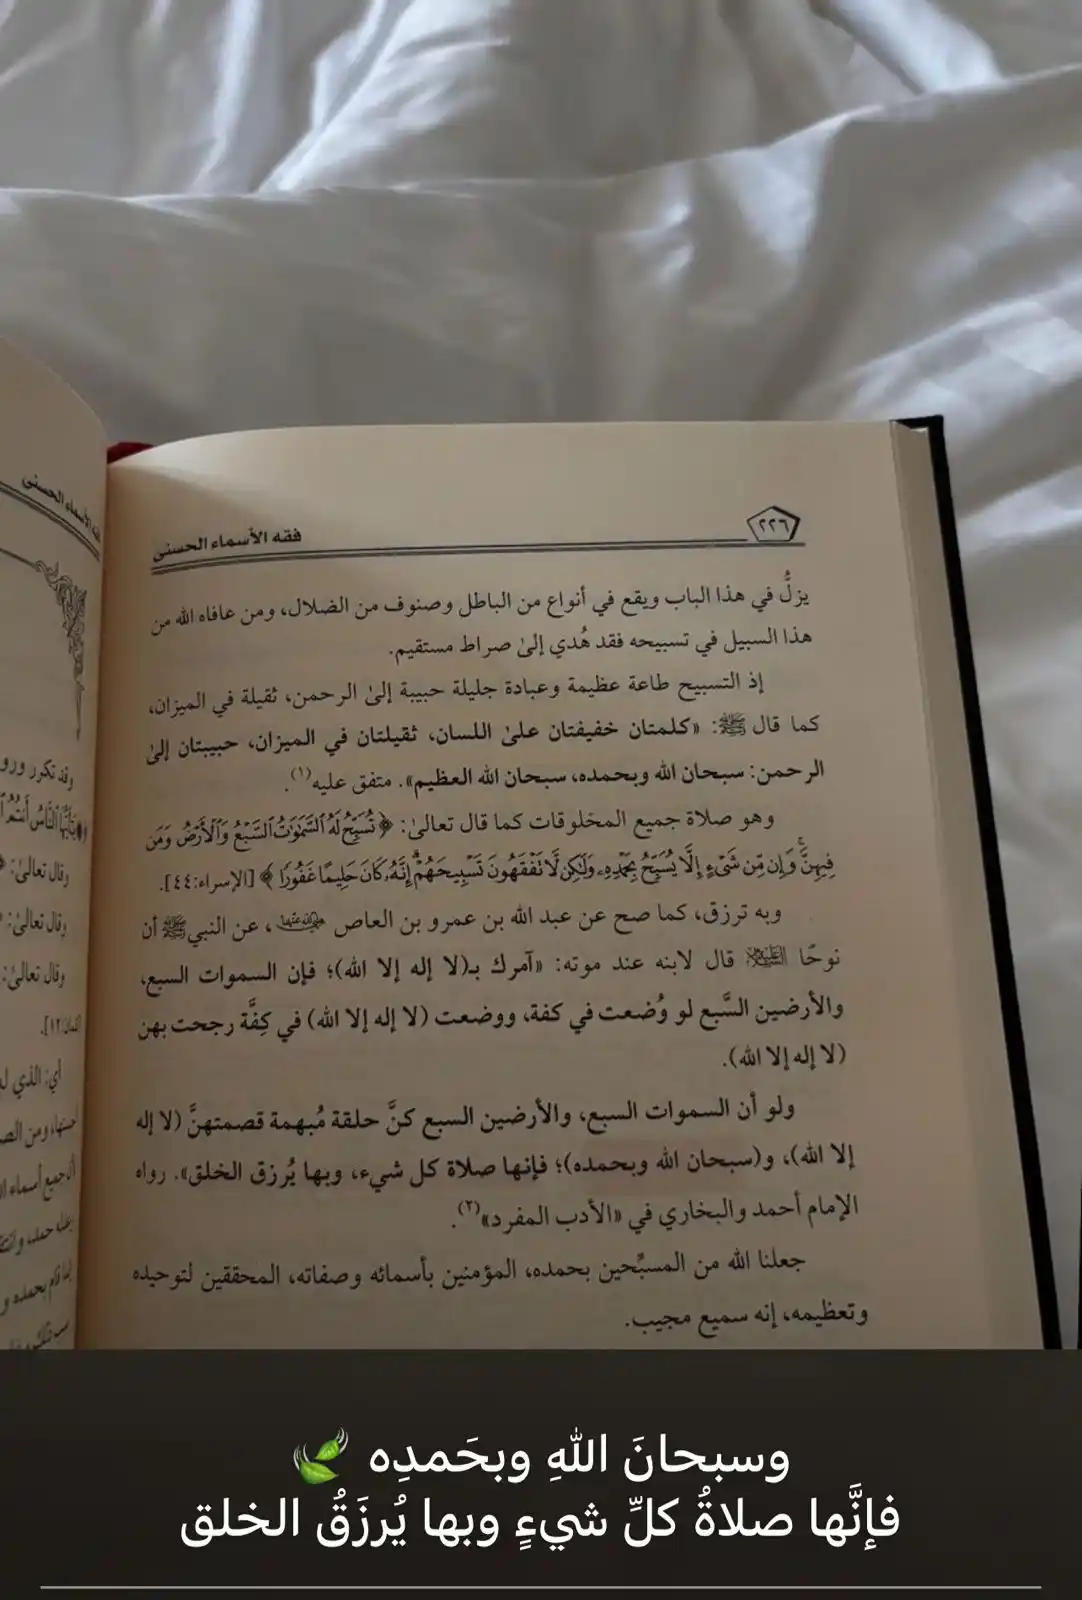 فقه الأسماء الحسنى
٢٢٦
فقه الأسماء الحسنى
يزلُّ في هذا الباب ويقع في أنواع من الباطل وصنوف من الضلال، ومن عافاه الله من
هذا السبيل في تسبيحه فقد هُدي إلىٰ صراط مستقيم.
إذ التسبيح طاعة عظيمة وعبادة جليلة حبيبة إلىٰ الرحمن، ثقيلة في الميزان،
كما قال ﷺ: «كلمتان خفيفتان علىٰ اللسان، ثقيلتان في الميزان، حبيبتان إلىٰ
الرحمن: سبحان الله وبحمده، سبحان الله العظيم». متفق عليه(١).
وهو صلاة جميع المخلوقات كما قال تعالىٰ: ﴿تُسَبِّحُ لَهُ ٱلسَّمَٰوَٰتُ ٱلسَّبْعُ وَٱلْأَرْضُ وَمَن
فِيهِنَّ ۚ وَإِن مِّن شَىْءٍ إِلَّا يُسَبِّحُ بِحَمْدِهِۦ وَلَٰكِن لَّا تَفْقَهُونَ تَسْبِيحَهُمْ ۗ إِنَّهُۥ كَانَ حَلِيمًا غَفُورًا﴾ [الإسراء:٤٤].
وبه ترزق، كما صح عن عبد الله بن عمرو بن العاص رضي الله عنهما، عن النبي ﷺ أن
نوحًا عليه السلام قال لابنه عند موته: «آمرك بـ(لا إله إلا الله)؛ فإن السموات السبع،
والأرضين السَّبع لو وُضعت في كفة، ووضعت (لا إله إلا الله) في كِفَّة رجحت بهن
(لا إله إلا الله).
ولو أن السموات السبع، والأرضين السبع كنَّ حلقة مُبهمة قصمتهنَّ (لا إله
إلا الله)، و(سبحان الله وبحمده)؛ فإنها صلاة كل شيء، وبها يُرزق الخلق». رواه
الإمام أحمد والبخاري في «الأدب المفرد»(٢).
جعلنا الله من المسبِّحين بحمده، المؤمنين بأسمائه وصفاته، المحققين لتوحيده
وتعظيمه، إنه سميع مجيب.
وقد تكرر
وقال تعالىٰ:
وقال تعالىٰ:
وقال تعالىٰ:
أي: الذي
وسبحانَ اللهِ وبحَمدِه 🍃
فإنَّها صلاةُ كلِّ شيءٍ وبها يُرزَقُ الخلق